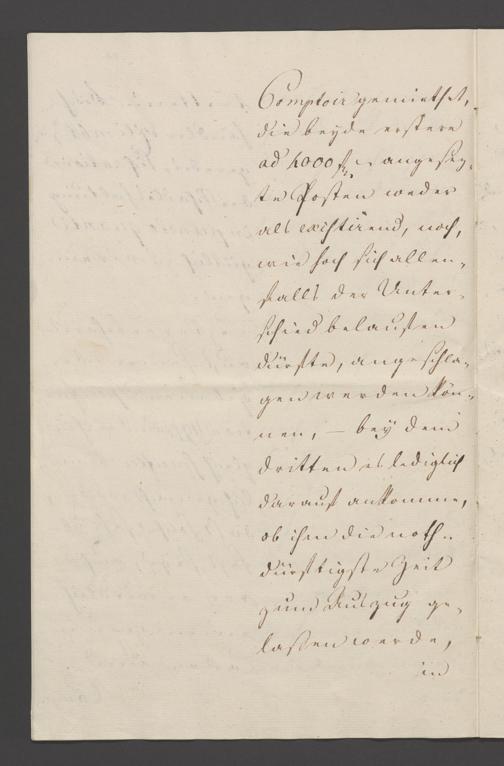 Comptoir gemiethet,
die beyde erstere
ad 4000 f angesez-
te Posten weder
als existirend, noch,
wie hoch sich allen-
falls der Unter-
schied belaufen
dürfte, angeschla-
gen werden kön-
nen, – bey dem
dritten es lediglich
darauf ankomme,
ob ihm die noth-
dürftigste Zeit
zum Auszug ge-
laßen werde,
in